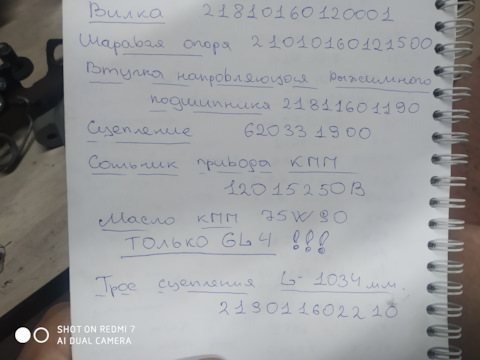 Вилка 21810160120001
Шаравая опора 21010160121500
Втулка напровляющая выжимного
подшипника 21811601190
Сцепление 620331900
Сальник привода КПП
12015250В
Масло КПП 75W90
ТОЛЬКО GL4 !!!
Трос сцепления L-1034мм.
21901160221 0
SHOT ON REDMI 7
AI DUAL CAMERA